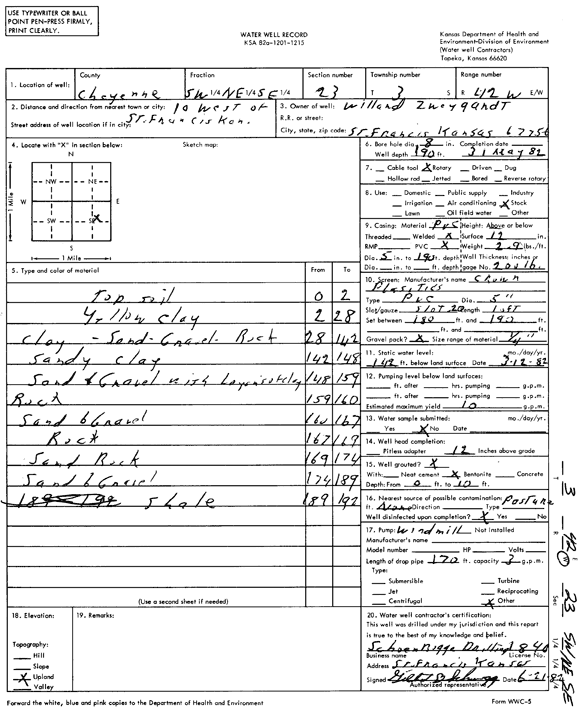 USE TYPEWRITER OR BALL
POINT PEN-PRESS FIRMLY,
PRINT CLEARLY.
WATER WELL RECORD
KSA 82a-1201-1215
Kansas Department of Health and
Environment-Division of Environment
(Water well Contractors)
Topeka, Kansas 66620
1. Location of well: County Fraction Section number Township number Range number
Cheyenne SW 1/4 NE 1/4 SE 1/4 23 T 3 S R 42 W E/W
2. Distance and direction from nearest town or city: 10 West of
Street address of well location if in city: St. Francis Kan.
3. Owner of well: Willard Zweygardt
R.R. or street:
City, state, zip code: St. Francis Kansas 67756
4. Locate with "X" in section below: Sketch map:
N
NW NE
W E
SW SE X
S
1 Mile
1 Mile
6. Bore hole dia 8 in. Completion date
Well depth 190 ft. 31 May 82
7. Cable tool X Rotary Driven Dug
Hollow rod Jetted Bored Reverse rotary
8. Use: Domestic Public supply Industry
Irrigation Air conditioning X Stock
Lawn Oil field water Other
9. Casing: Material PVC Height: Above or below
Threaded Welded X Surface 12 in.
RMP PVC X Weight 2.9 lbs./ft.
Dia. 5 in. to 190 ft. depth Wall Thickness: inches or
Dia. in. to ft. depth gage No. 200 lb.
10. Screen: Manufacturer's name Crown
Plastics
Type PVC Dia. 5"
Slot/gauze Slot 20 Length 10 ft
Set between 180 ft. and 190 ft.
ft. and ft.
Gravel pack? X Size range of material 1/4"
11. Static water level: mo./day/yr.
142 ft. below land surface Date 3-12-82
12. Pumping level below land surfaces:
ft. after hrs. pumping g.p.m.
ft. after hrs. pumping g.p.m.
Estimated maximum yield 10 g.p.m.
13. Water sample submitted: mo./day/yr.
Yes X No Date
14. Well head completion:
Pitless adapter 12 Inches above grade
15. Well grouted? X
With: Neat cement X Bentonite Concrete
Depth: From 0 ft. to 10 ft.
16. Nearest source of possible contamination: Pasture
ft. None Direction Type
Well disinfected upon completion? X Yes No
17. Pump: Windmill Not installed
Manufacturer's name
Model number HP Volts
Length of drop pipe 170 ft. capacity 3 g.p.m.
Type:
Submersible Turbine
Jet Reciprocating
Centrifugal X Other
5. Type and color of material From To
Top soil 0 2
Yellow clay 2 28
Clay - Sand - Gravel - Rock 28 142
Sandy Clay 142 148
Sand & Gravel with Layers of clay 148 159
Rock 159 160
Sand & Gravel 160 167
Rock 167 169
Sand Rock 169 174
Sand & Gravel 174 189
189 192 Shale 189 192
(Use a second sheet if needed)
18. Elevation:
Topography:
Hill
Slope
X Upland
Valley
19. Remarks:
20. Water well contractor's certification:
This well was drilled under my jurisdiction and this report
is true to the best of my knowledge and belief.
Schoenrogge Drilling 840
Business name License No.
Address St. Francis Kansas
Signed Date 6-21-82
Authorized representative
T 3 R 42 W Sec 23 SW 1/4 NE 1/4 SE 1/4
Forward the white, blue and pink copies to the Department of Health and Environment
Form WWC-5